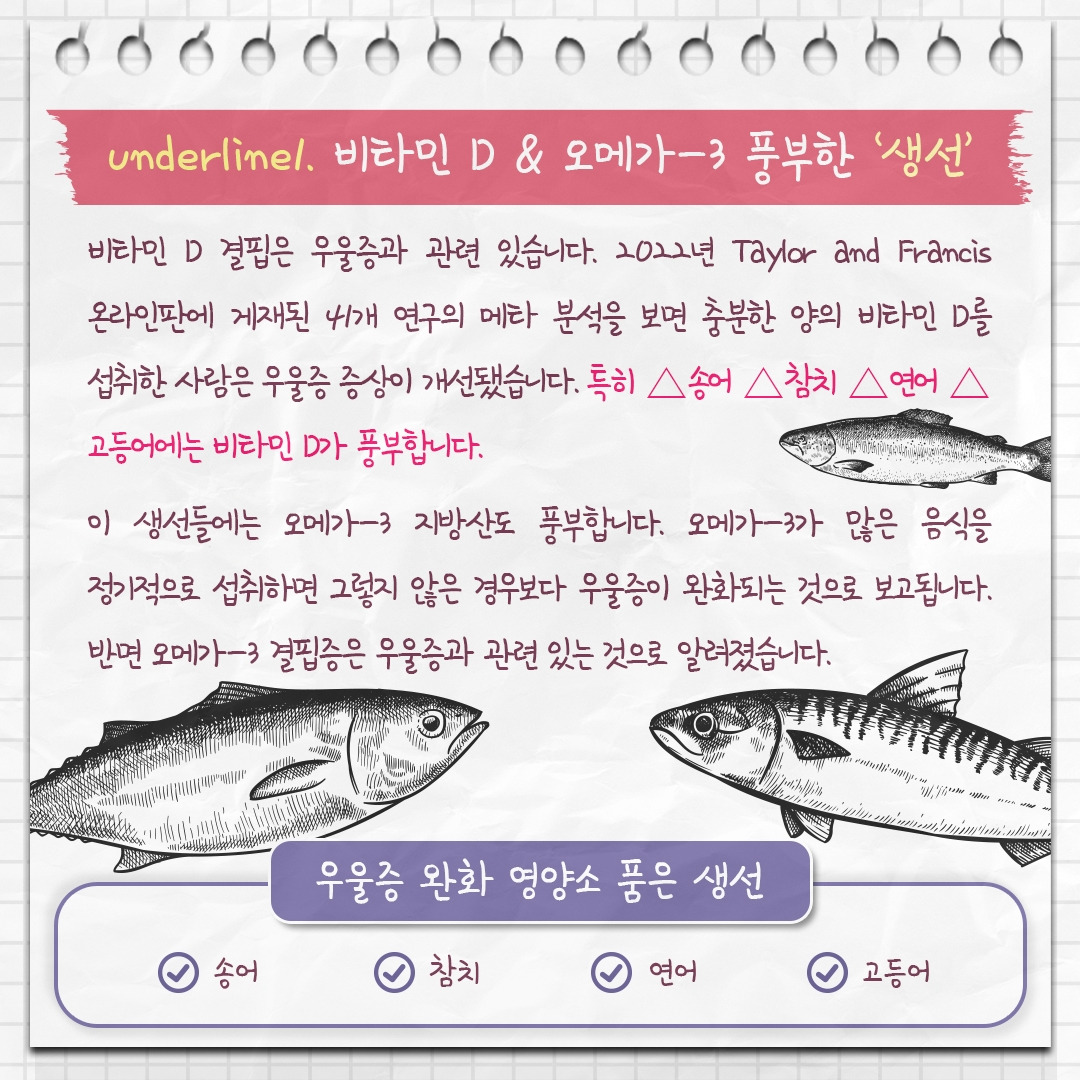 underline1. 비타민 D & 오메가-3 풍부한 ‘생선’
비타민 D 결핍은 우울증과 관련 있습니다. 2022년 Taylor and Francis
온라인판에 게재된 41개 연구의 메타 분석을 보면 충분한 양의 비타민 D를
섭취한 사람은 우울증 증상이 개선됐습니다. 특히 △송어 △참치 △연어 △
고등어에는 비타민 D가 풍부합니다.
이 생선들에는 오메가-3 지방산도 풍부합니다. 오메가-3가 많은 음식을
정기적으로 섭취하면 그렇지 않은 경우보다 우울증이 완화되는 것으로 보고됩니다.
반면 오메가-3 결핍증은 우울증과 관련 있는 것으로 알려졌습니다.
우울증 완화 영양소 품은 생선
송어 참치 연어 고등어